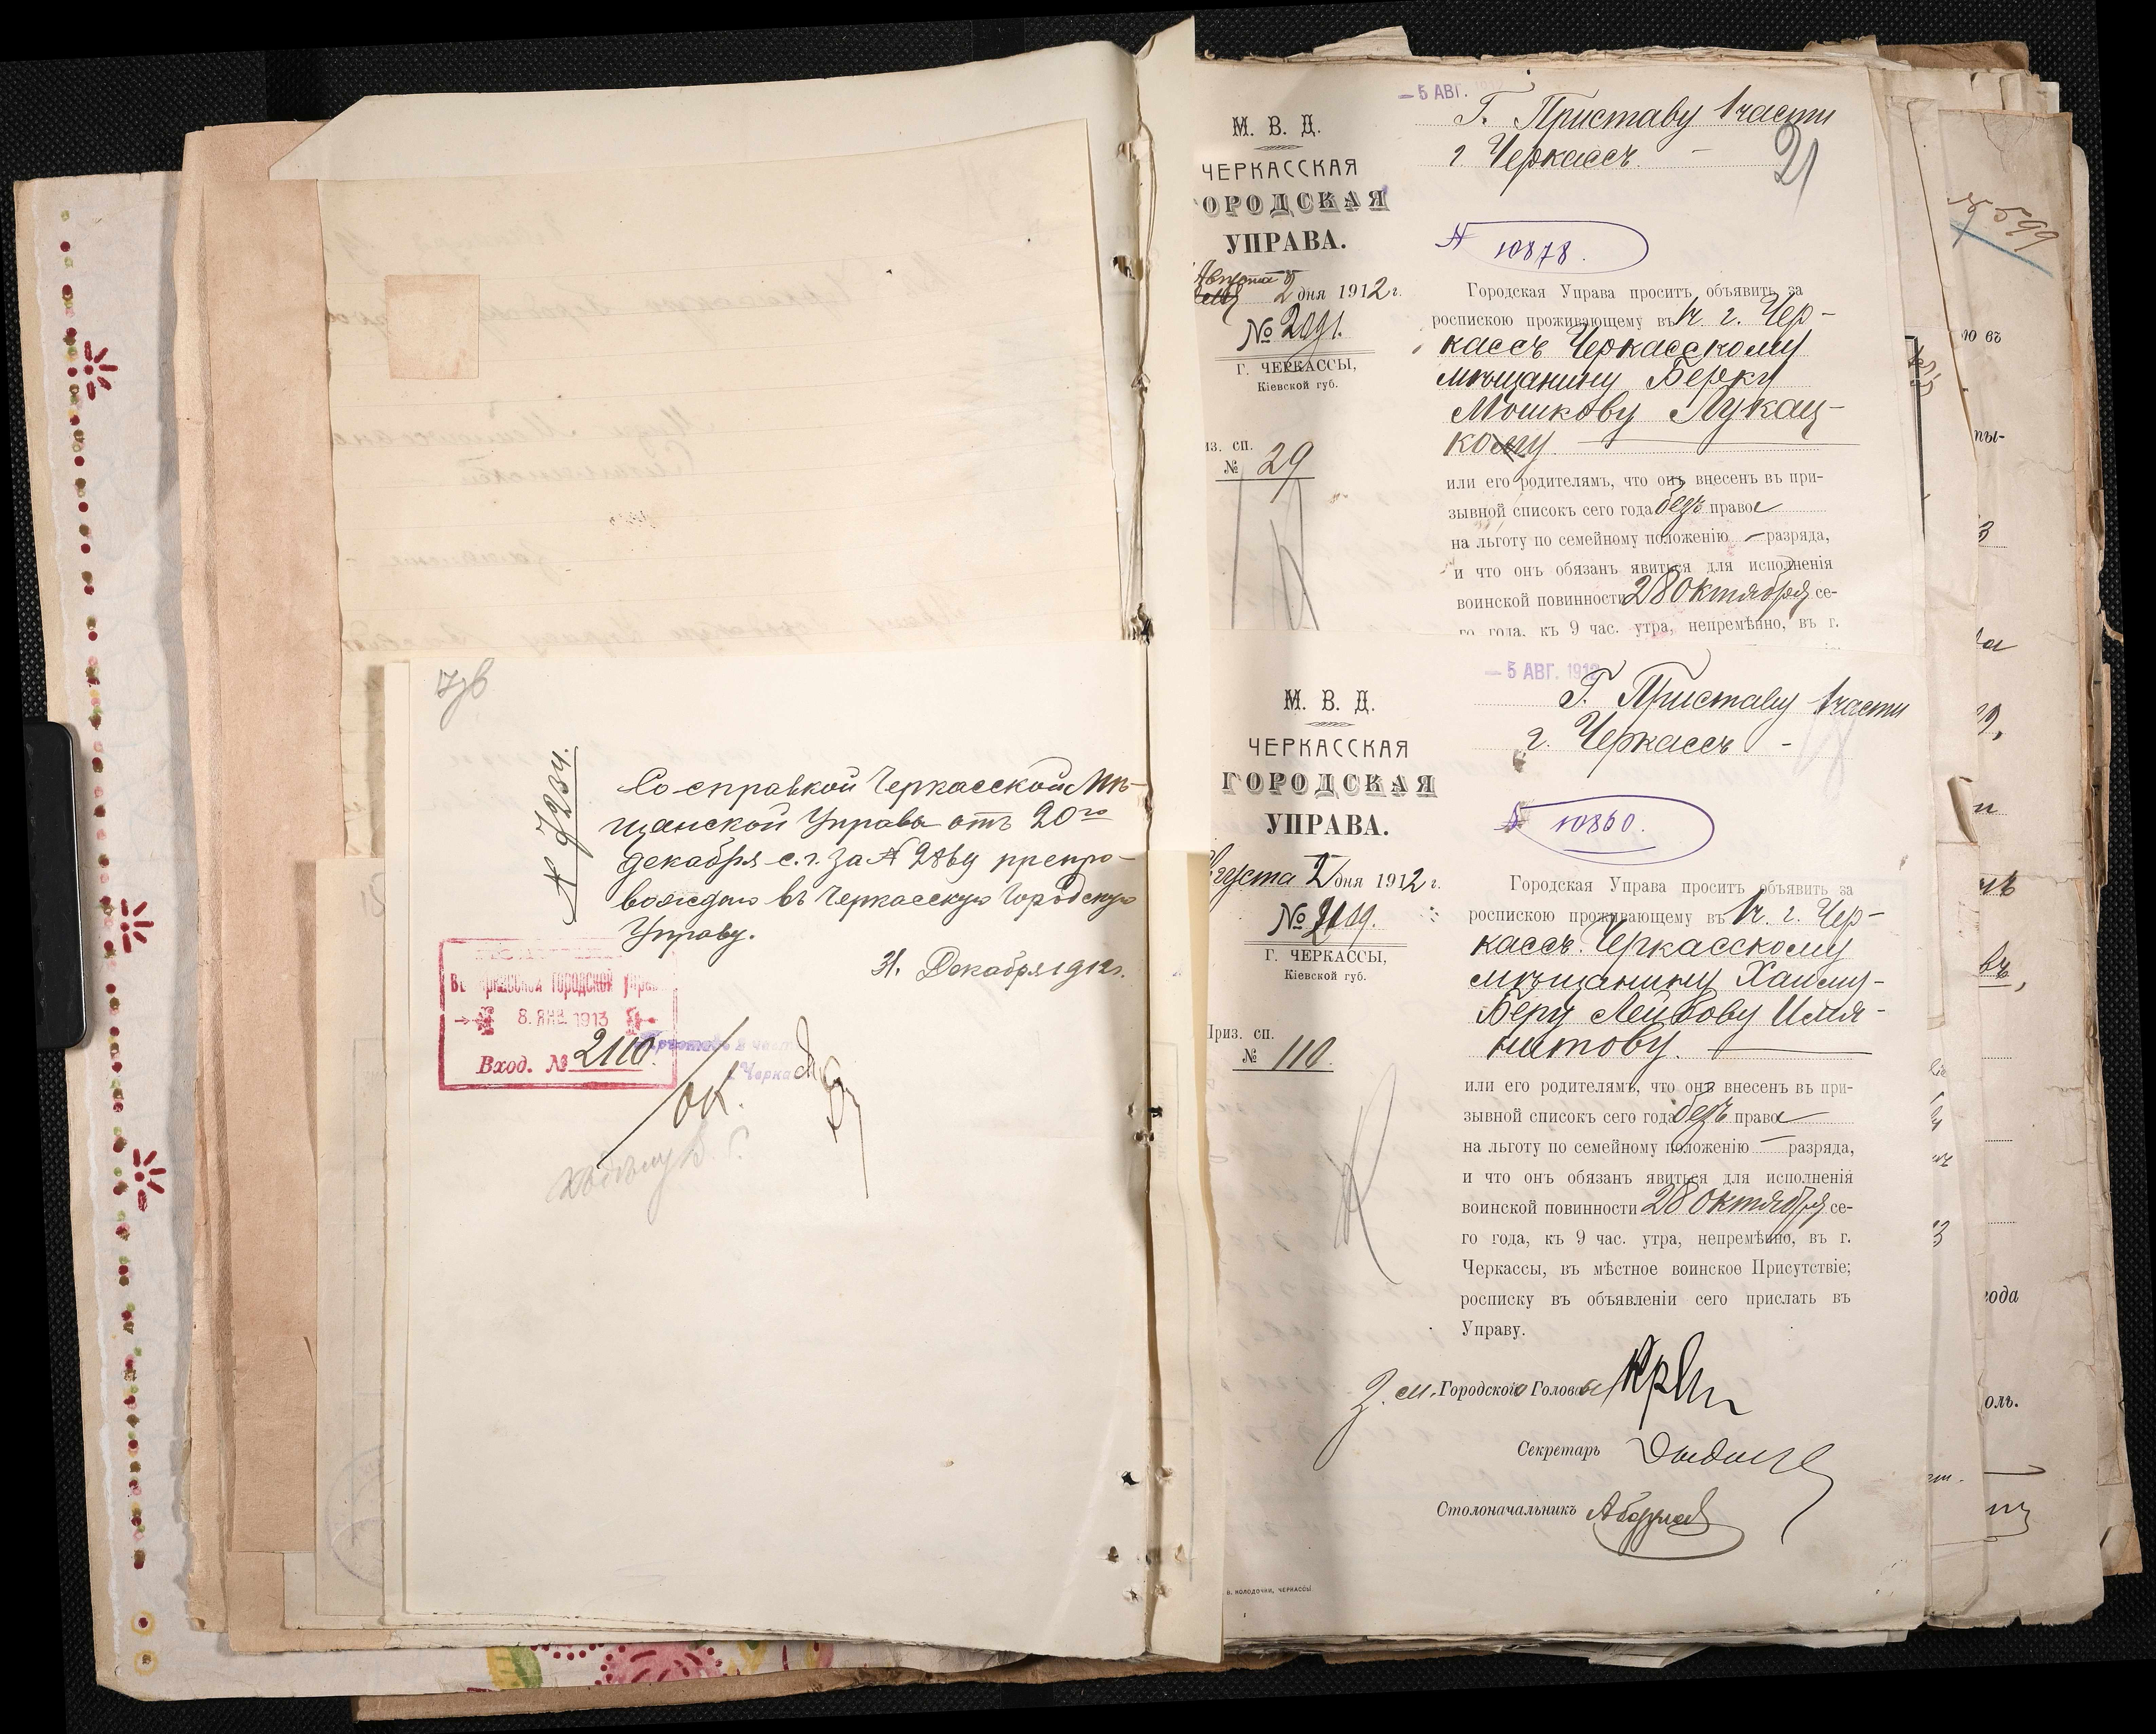 Со справкой Черкасской Мѣ-
щанской Управы отъ 20го
декабря с. г. за №
вождаю въ Черкасскую Городскую
Управу.
31. Декабря 1912 г.
№ 7234.
8. ЯНВ. 1913
Вход. № 2110.
— 5 АВГ.
Г. Приставу 1 части
г. Черкассъ
21
М. В. Д.
ЧЕРКАССКАЯ
ОРОДСКАЯ
УПРАВА.
Августа 2 дня 1912 г.
№ 2091.
Г. ЧЕРКАССЫ,
Кіевской губ.
из. сп.
№ 29
№ 10878.
Городская Управа проситъ объявить за
роспискою проживающему въ 1 ч. г. Чер-
кассъ Черкасскому
мѣщанину Берку
Мошкову Лукац-
кому
или его родителямъ, что онъ внесенъ въ при-
зывной списокъ сего года безъ права
на льготу по семейному положенію — разряда,
и что онъ обязанъ явиться для исполненія
воинской повинности 28 октября се-
го года, къ 9 час. утра, непремѣнно, въ г.
— 5 АВГ. 1912
Г. Приставу 1 части
г. Черкассъ -
М. В. Д.
ЧЕРКАССКАЯ
ГОРОДСКАЯ
УПРАВА.
Августа 2 дня 1912 г.
№ 2109.
Г. ЧЕРКАССЫ,
Кіевской губ.
Приз. сп.
№ 110.
№ 10860.
Городская Управа проситъ объявить за
роспискою проживающему въ 1 ч. г. Чер-
кассъ Черкасскому
мѣщанину Хаиму-
Беру Лейбову Имя-
нитову.
или его родителямъ, что онъ внесенъ въ при-
зывной списокъ сего года безъ права
на льготу по семейному положенію — разряда,
и что онъ обязанъ явиться для исполненія
воинской повинности 28 октября се-
го года, къ 9 час. утра, непремѣнно, въ г.
Черкассы, въ мѣстное воинское Присутствіе;
росписку въ объявленіи сего прислать въ
Управу.
З. м. Городского Головы
Секретарь
Столоначальникъ
В. КОЛОДОЧКИ, ЧЕРКАССЫ
№ 599